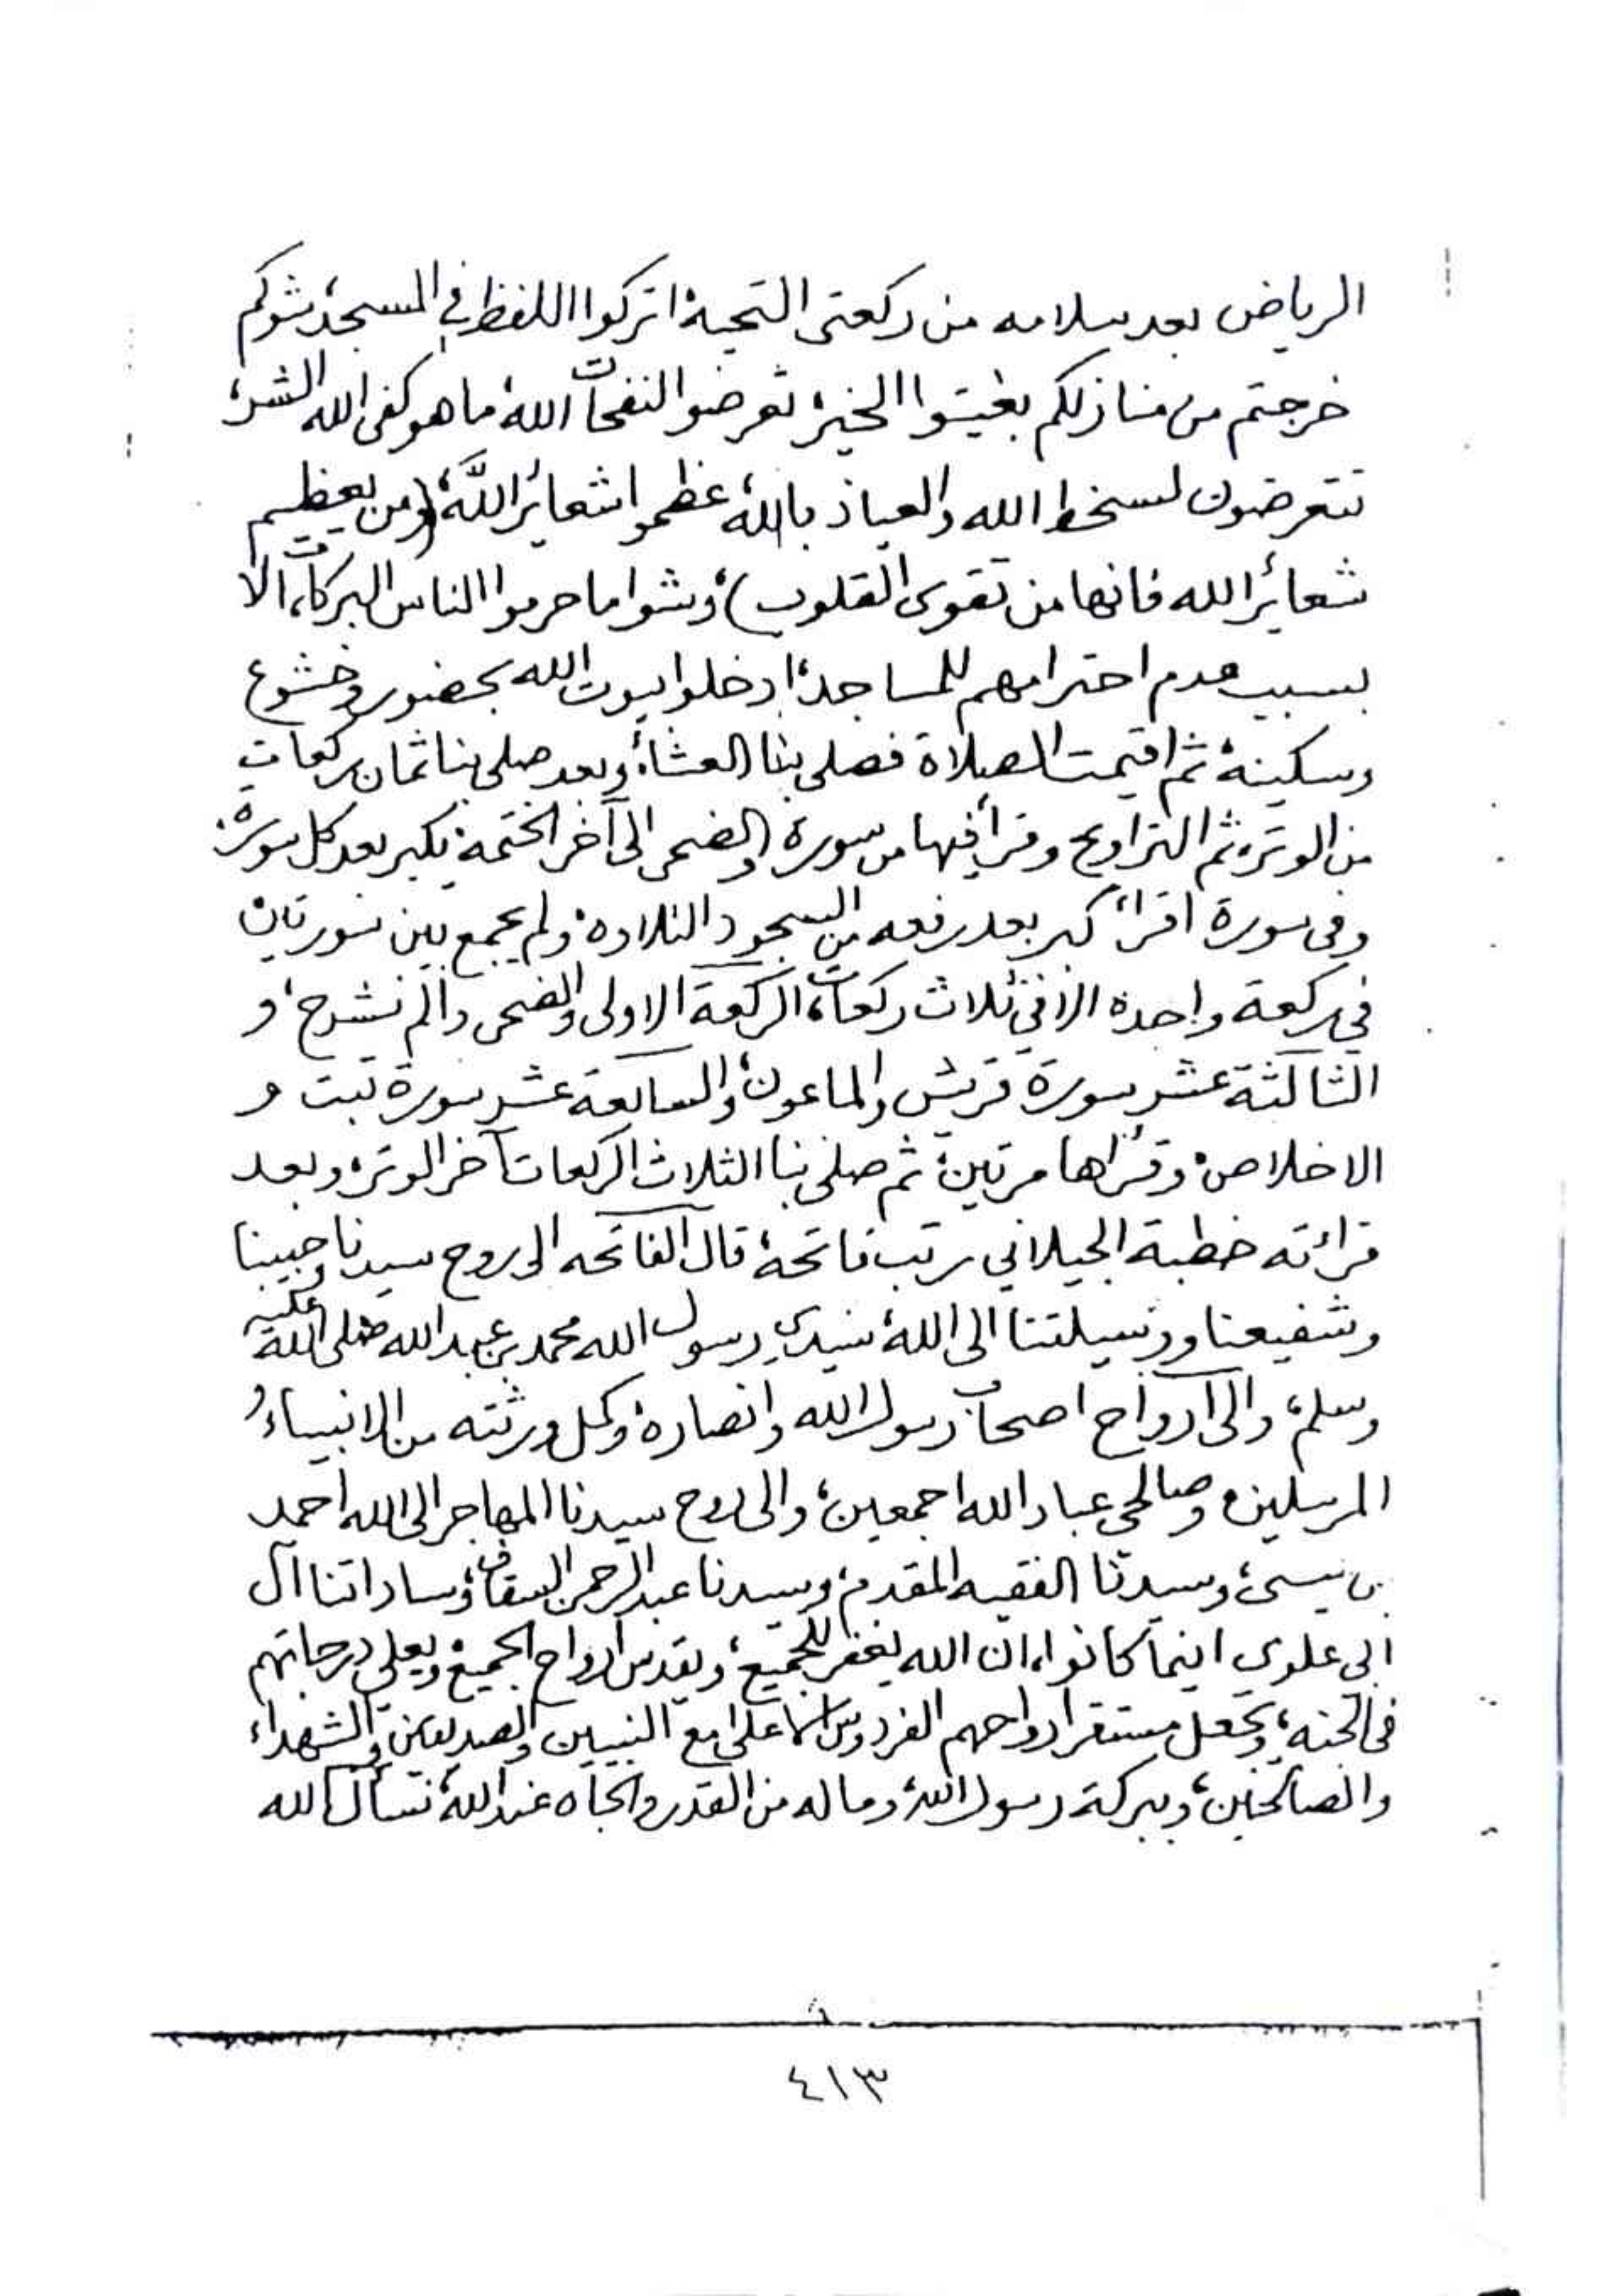 الرياض بعد سلامه من ركعتى التحية، اتركوا اللغط في المسجد، شوكم
خرجتم من منازلكم بغيتوا الخير، تعرضوا لنفحات الله، ما هو كفى الله الشر،
تتعرضون لسخط الله والعياذ بالله، عظموا شعائر الله، (ومن يعظم
شعائر الله فانها من تقوى القلوب)، وشوا ما حرموا الناس البركات، الا
بسبب عدم احترامهم للمساجد، ادخلوا بيوت الله بحضور وخشوع
وسكينة، ثم اقيمت الصلاة فصلى بنا العشاء، وبعد صلى بنا ثمان ركعات
من الوتر، ثم التراويح وقرأ فيها من سورة والضحى الى آخر الختمة، يكبر بعد كل سورة،
وفى سورة اقرأ كبر بعد رفعه من السجود التلاوة، ولم يجمع بين سورتين
في ركعة واحدة الا في ثلاث ركعات، الركعة الاولى والضحى والم نشرح، و
الثالثة عشر سورة قريش والماعون، والسابعة عشر سورة تبت و
الاخلاص، وقرأها مرتين، ثم صلى بنا الثلاث الركعات آخر الوتر، وبعد
قرائته خطبة الجيلاني رتب فاتحة، قال الفاتحه الى روح سيدنا وحبيبنا
وشفيعنا ووسيلتنا الى الله، سيدي رسول الله محمد بن عبد الله صلى الله عليه
وسلم، والى أرواح اصحاب رسول الله وانصاره، وكمل ورثته من الانبياء و
المرسلين، وصالحي عباد الله اجمعين، والى روح سيدنا المهاجر الى الله احمد
بن عيسى، وسيدنا الفقيه المقدم، وسيدنا عبد الرحمن السقاف، وساداتنا آل
ابى علوي اينما كانوا، ان الله يغفر للجميع، ويقدس ارواح الجميع، ويعلي درجاتهم
فى الجنه، ويجعل مستقر ارواحهم الفردوس الاعلى مع النبيين والصديقين والشهداء
والصالحين، وببركة رسول الله، وما له من القدر والجاه عند الله، نسأل الله
٤١٣